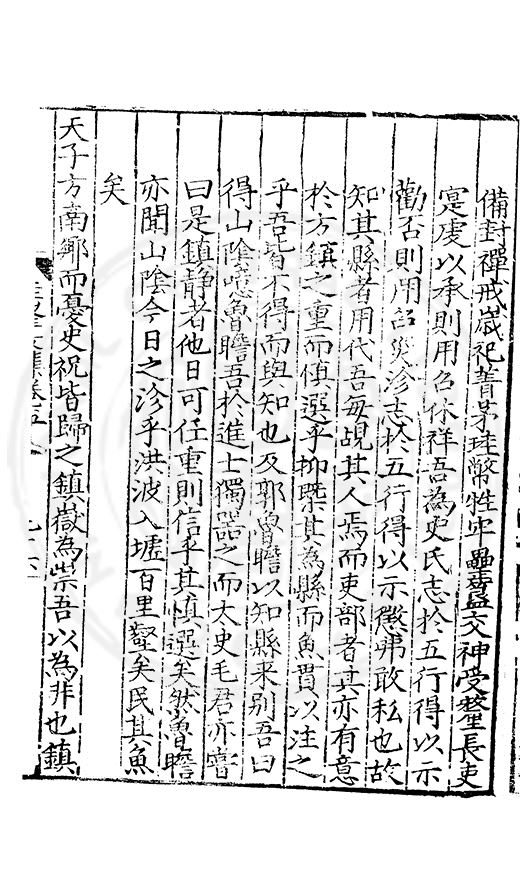 備封禪戒歲祀菁茅珪幣牲牢罍齍盛交神受釐長吏
寔虔以承則用召休祥吾為史氏志於五行得以示
勸否則用召災沴志於五行得以示懲弗敢私也故
知其縣者用代吾每覘其人焉而吏部者其亦有意
於方鎮之重而慎選乎抑槩其為縣而魚貫以注之
乎吾皆不得而與知也及郭魯瞻以知縣来别吾曰
得山陰噫魯瞻吾於進士獨器之而太史毛君亦嘗
曰是鎮静者他日可任重則信乎其慎選矣然魯瞻
亦聞山陰今日之沴乎洪波入墟百里壑矣民其魚
矣
天子方南鄉而憂史祝皆歸之鎮嶽為祟吾以為非也鎮
文集卷五